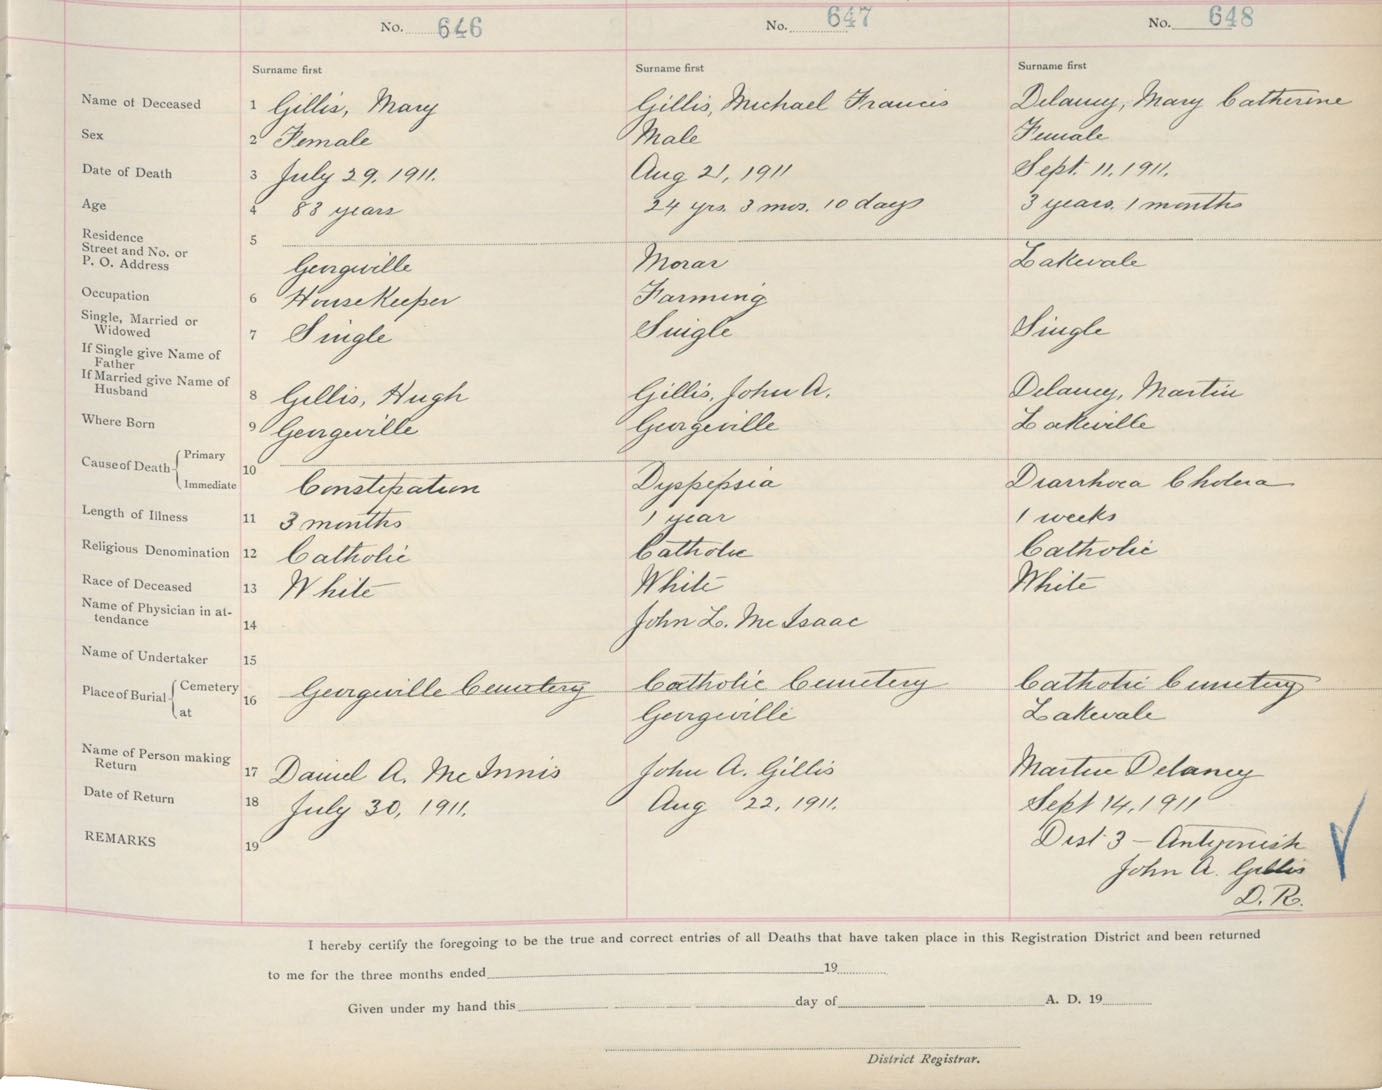 No. 646 No. 647 No. 648
Surname first Surname first Surname first
Name of Deceased 1 Gillis, Mary Gillis, Michael Francis Delaney, Mary Catherine
Sex 2 Female Male Female
Date of Death 3 July 29, 1911. Aug 21, 1911 Sept. 11, 1911.
Age 4 83 years 24 yrs. 3 mos. 10 days 3 years. 1 months
Residence 5
Street and No. or
P. O. Address Georgeville Morar Lakevale
Occupation 6 HouseKeeper Farming
Single, Married or
Widowed 7 Single Single Single
If Single give Name of
Father
If Married give Name of
Husband 8 Gillis, Hugh Gillis, John A. Delaney, Martin
Where Born 9 Georgeville Georgeville Lakeville
Cause of Death Primary 10
Immediate Constipation Dyspepsia Diarrhoea Cholera
Length of Illness 11 3 months 1 year 1 weeks
Religious Denomination 12 Catholic Catholic Catholic
Race of Deceased 13 White White White
Name of Physician in at-
tendance 14 John L. McIsaac
Name of Undertaker 15
Place of Burial Cemetery 16 Georgeville Cemetery Catholic Cemetery Catholic Cemetery
at Georgeville Lakevale
Name of Person making
Return 17 Daniel A. McInnis John A. Gillis Martin Delaney
Date of Return 18 July 30, 1911. Aug 22, 1911. Sept 14, 1911
REMARKS 19 Dist 3 – Antigonish
John A. Gillis
D. R.
I hereby certify the foregoing to be the true and correct entries of all Deaths that have taken place in this Registration District and been returned
to me for the three months ended 19
Given under my hand this day of A. D. 19
District Registrar.